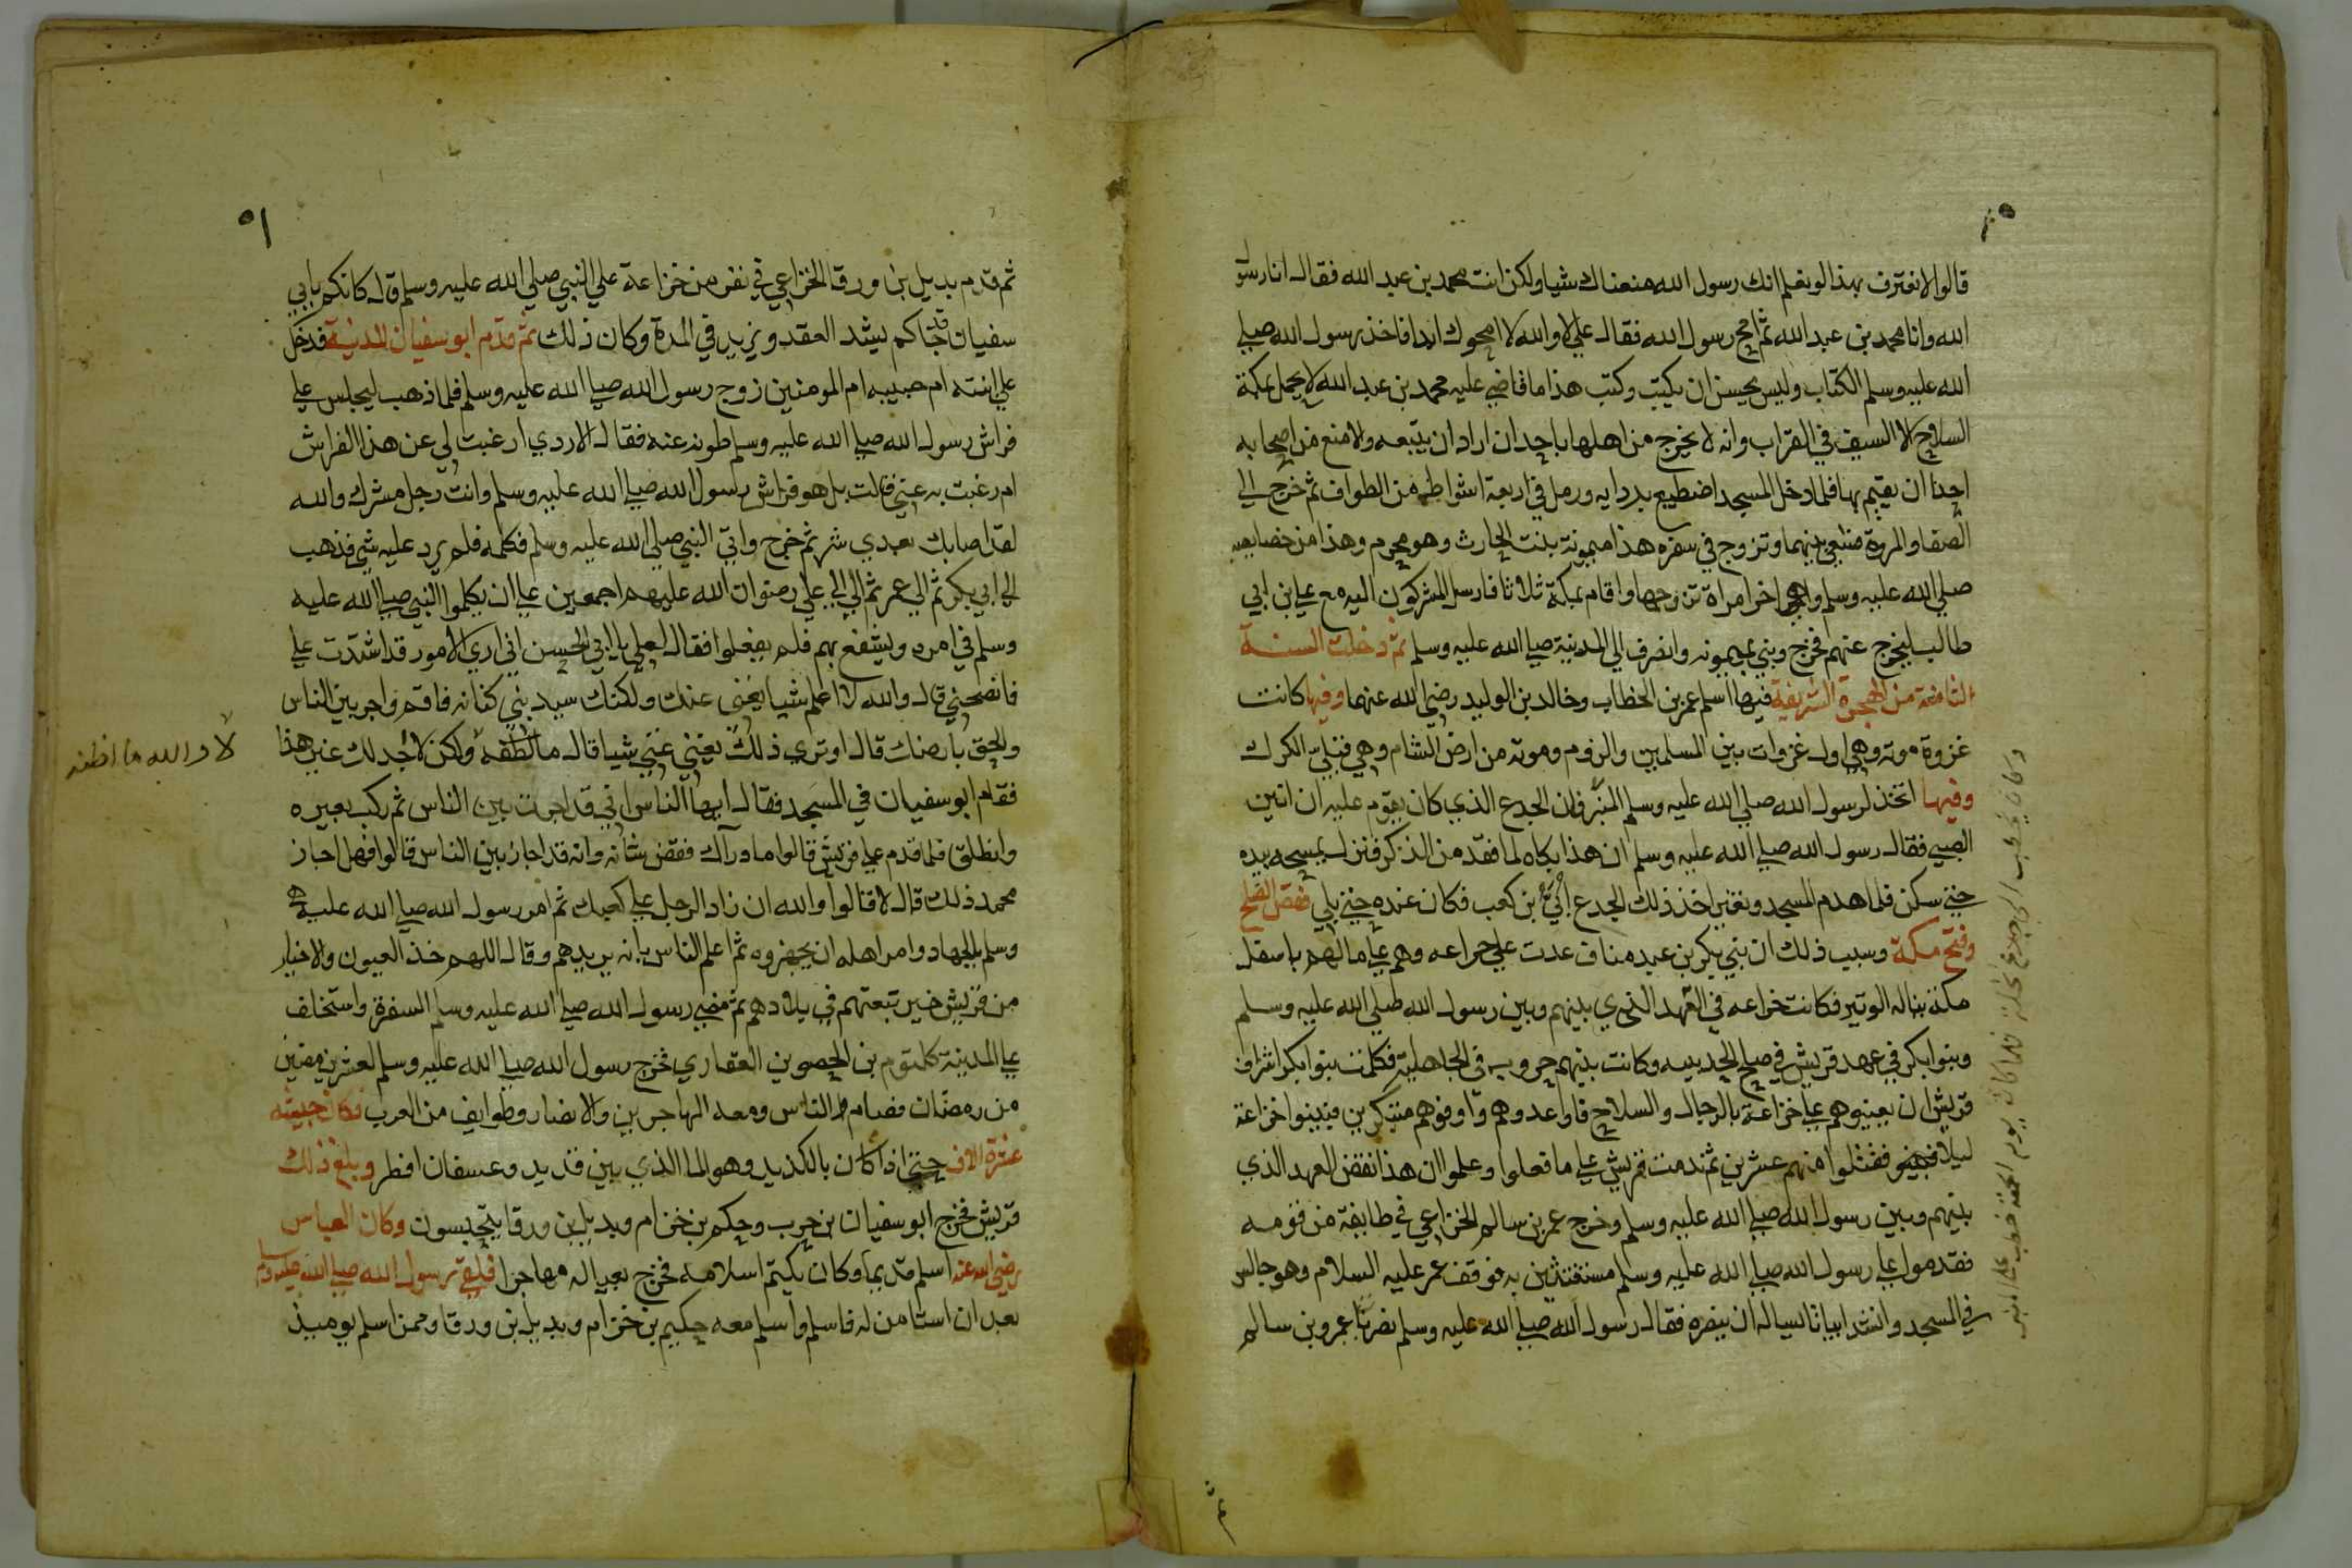 قالوا لا نعترف بهذا لو نعلم انك رسول الله منعناك شيا ولكن انت محمد بن عبد الله فقال انا رسول
الله وانا محمد بن عبد الله ثم امح رسول الله فقال علي لا والله لا امحوك ابدا فاخذ رسول الله صلي
الله عليه وسلم الكتاب وليس يحسن ان يكتب وكتب هذا ما قاضي عليه محمد بن عبد الله لا يحمل بمكة
السلاح الا السيف في القراب وانه لا يخرج من اهلها باحد ان اراد ان يتبعه ولا منع من اصحابه
احدا ان يقيم بها فلما دخل المسجد اضطبع بردايه ورمل في اربعة اشواط من الطواف ثم خرج الي
الصفا والمروة فسعي بينهما وتزوج في سفره هذا ميمونة بنت الحارث وهو محرم وهذا من خصايصه
صلي الله عليه وسلم وهي اخر امراة تزوجها واقام بمكة ثلاثا فارسل المشركون اليه مع علي ابن ابي
طالب ليخرج عنهم فخرج وبني بميمونه وانصرف الي المدينة صلي الله عليه وسلم ثم دخلت السنة
الثامنة من الهجرة الشريفة فيها اسلم عمر بن الخطاب وخالد بن الوليد رضي الله عنهما وفيها كانت
غزوة موته وهي اول غزوات بين المسلمين والروم وموته من ارض الشام وهي قبلي الكرك
وفيها اتخذ لرسول الله صلي الله عليه وسلم المنبر فان الجدع الذي كان يقوم عليه ان انين
الصبي فقال رسول الله صلي الله عليه وسلم ان هذا بكاه لما فقد من الذكر فنزل يمسحه بيده
حتي سكن فلما هدم المسجد وتغير اخذ ذلك الجدع ابي بن كعب فكان عنده حتي بلي فقض الصلح
وفتح مكة وسبب ذلك ان بني بكر بن عبد مناف عدت علي خزاعه وهم علي ما لهم باسفل
مكة يقاله الوتير فكانت خزاعه في العهد الذي بينهم وبين رسول الله صلي الله عليه وسلم
وبنوا بكر في عهد قريش في صلح الحديبيه وكانت بينهم حروب في الجاهلية فكلمت بنوا بكر اشراف
قريش ان يعينوهم علي خزاعة بالرجال والسلاح فاوعدوهم واوفوهم متنكرين فبيتوا خزاعة
ليلا فقتلوا منهم عشرين ثم ندمت قريش علي ما فعلوا وعلموا ان هذا نقض العهد الذي
بينهم وبين رسول الله صلي الله عليه وسلم وخرج عمر بن سالم الخزاعي في طايفة من قومه
فقدموا علي رسول الله صلي الله عليه وسلم مستغيثين به فوقف عمر عليه السلام وهو جالس
في المسجد وانشد ابياتا يساله ان ينصره فقال رسول الله صلي الله عليه وسلم نصرتنا عمرو بن سالم
وكان يخطب الي جدع نخلة فلما كان يوم الجمعة خطب علي المنبر
٥١
ثم قدم بديل بن ورقا الخزاعي في نفر من خزاعة علي النبي صلي الله عليه وسلم قال كانكم بابي
سفيان قد جاكم يشد العقد ويزيد في المدة وكان ذلك ثم قدم ابو سفيان المدينة فدخل
علي ابنته ام حبيبه ام المومنين زوج رسول الله صلي الله عليه وسلم فلما ذهب ليجلس علي
فراش رسول الله صلي الله عليه وسلم طوته عنه فقال لا ادري ارغبت لي عن هذا الفراش
ام رغبت به عني قالت بل هو فراش رسول الله صلي الله عليه وسلم وانت رجل مشرك والله
لقد اصابك بعدي شر ثم خرج واتي النبي صلي الله عليه وسلم فكلمه فلم يرد عليه شي فذهب
الي ابي بكر ثم الي عمر ثم الي علي رضوان الله عليهم اجمعين علي ان يكلموا النبي صلي الله عليه
وسلم في امره ويتشفع بهم فلم يفعلوا فقال لعلي يا ابي الحسن اني اري الامور قد اشتدت علي
فانصحني قال والله لا اعلم شيا يغني عنك ولكنك سيد بني كنانه فاقم واجر بين الناس
والحق بارضك قال او تري ذلك يغني عني شيا قال ما اطقه ولكن لا اجد لك غير هذا
لا والله ما اظنه
فقام ابو سفيان في المسجد فقال ايها الناس اني قد اجرت بين الناس ثم ركب بعيره
وانطلق فلما قدم علي قريش قالوا ما وراك فقص شانه وانه قد اجاز بين الناس قالوا فهل اجاز
محمد ذلك قال لا قالوا والله ان زاد الرجل علي كعبك ثم امر رسول الله صلي الله عليه
وسلم بالجهاد وامر اهله ان يجهزوه ثم اعلم الناس بانه يريدهم وقال اللهم خذ العيون والاخبار
من قريش حين تبعتهم في بلادهم ثم مضي رسول الله صلي الله عليه وسلم السفرة واستخلف
علي المدينة كلثوم بن الحصوين الغفاري فخرج رسول الله صلي الله عليه وسلم لعشر مضين
من رمضان فصام والناس ومعه المهاجرين والانصار وطوايف من العرب فكان جيشه
عشرة الاف حتي اذا كان بالكديد وهو الما الذي بين قديد وعسفان افطر وبلغ ذلك
قريش فخرج ابو سفيان بن حرب وحكم بن خزام وبديل بن ورقا يتجسسون وكان العباس
رضي الله عنه اسلم قديما وكان يكتم اسلامه فخرج بعياله مهاجرا فلقي رسول الله صلي الله عليه وسلم
بعد ان استامن له فاسلم واسلم معه حكيم بن خزام وبديل بن ورقا وممن اسلم يوميذ